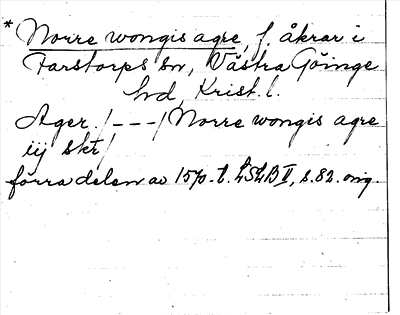 * Norre wongis agre, f. åkrar i
Farstorps sn, Västra Göinge
hd, Krist. l.
Ager /---/ Norre wongis agre
iij skr /
förra delen av 1570-t. LSLB II, s. 82. orig.